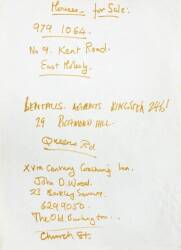 Houses for Sale.
979 1064.
No 9. Kent Road.
East Molesly.
BENTALLS. AGENTS KINGSTON 2461
29 RICHMOND HILL
Queens Rd
XVIII Century Coaching Inn.
John D. Wood.
23 Berkley Square.
629 9050
The Old Burlington.
Church St.